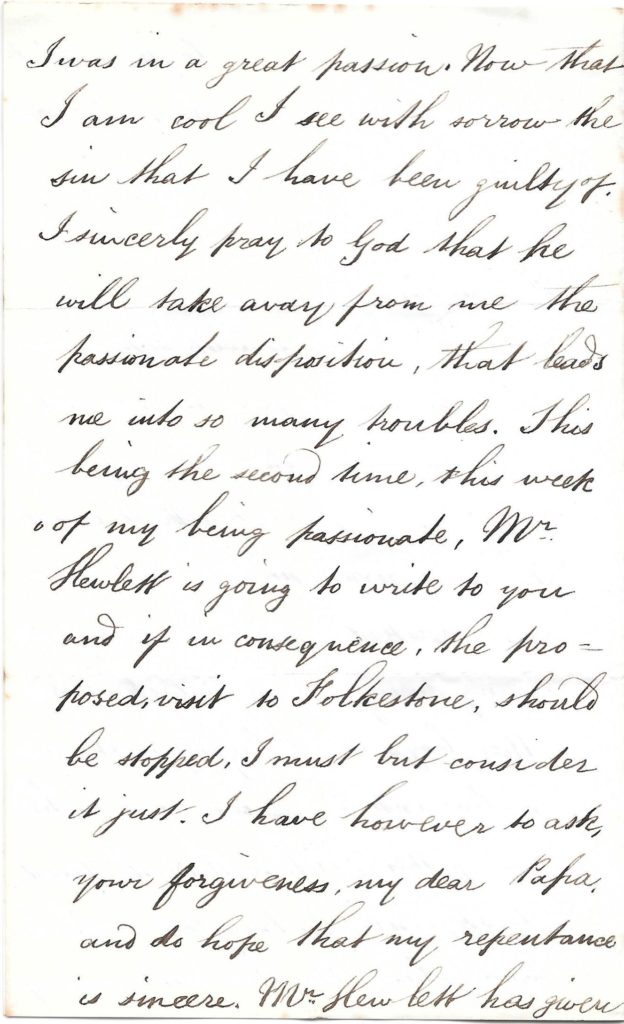 I was in a great passion. Now that
I am cool I see with sorrow the
sin that I have been guilty of.
I sincerly pray to God that he
will take away from me the
passionate disposition, that leads
me into so many troubles. This
being the second time, this week
of my being passionate, Mr.
Hewlett is going to write to you
and if in consequence, the pro=
posed, visit to Folkestone, should
be stopped, I must but consider
it just. I have however to ask,
your forgiveness, my dear Papa,
and do hope that my repentance
is sincere. Mr. Hewlett has given